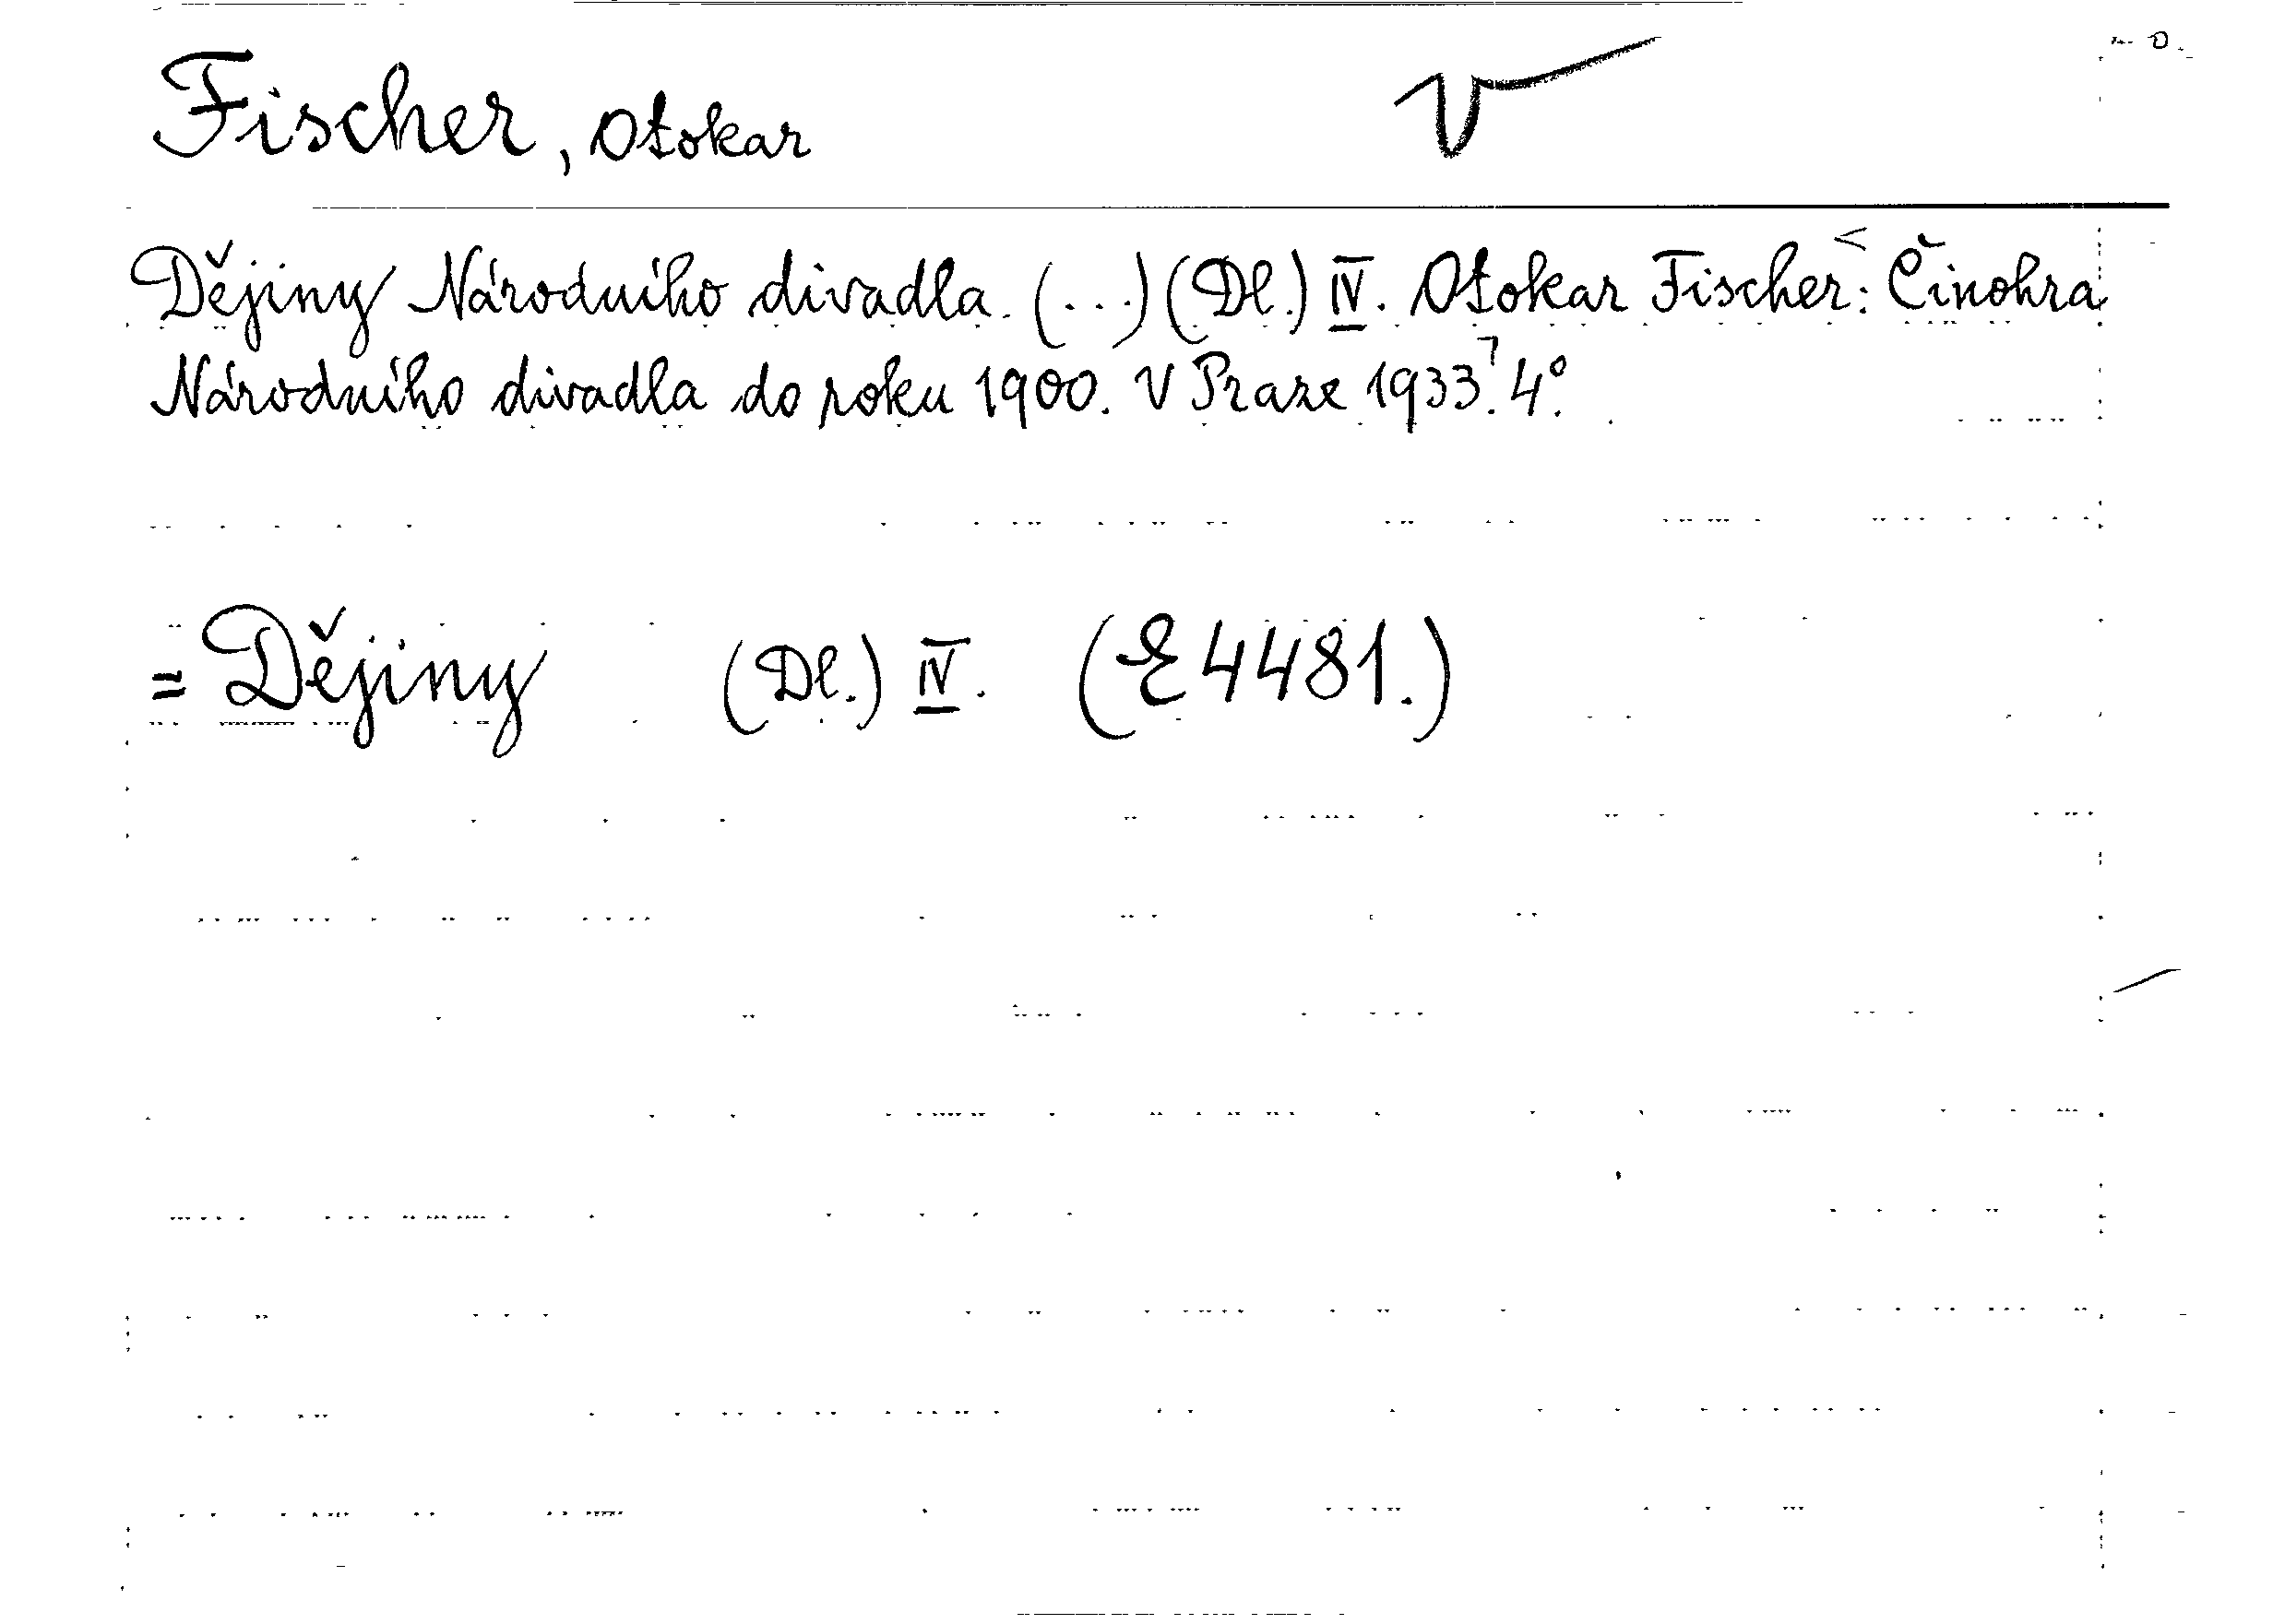 Fischer, Otokar
Dějiny Národního divadla. (...) (Dl.) IV. Otokar Fischer: Činohra
Národního divadla do roku 1900. V Praze 1933. 4°.
= Dějiny (Dl.) IV. (E 4481.)